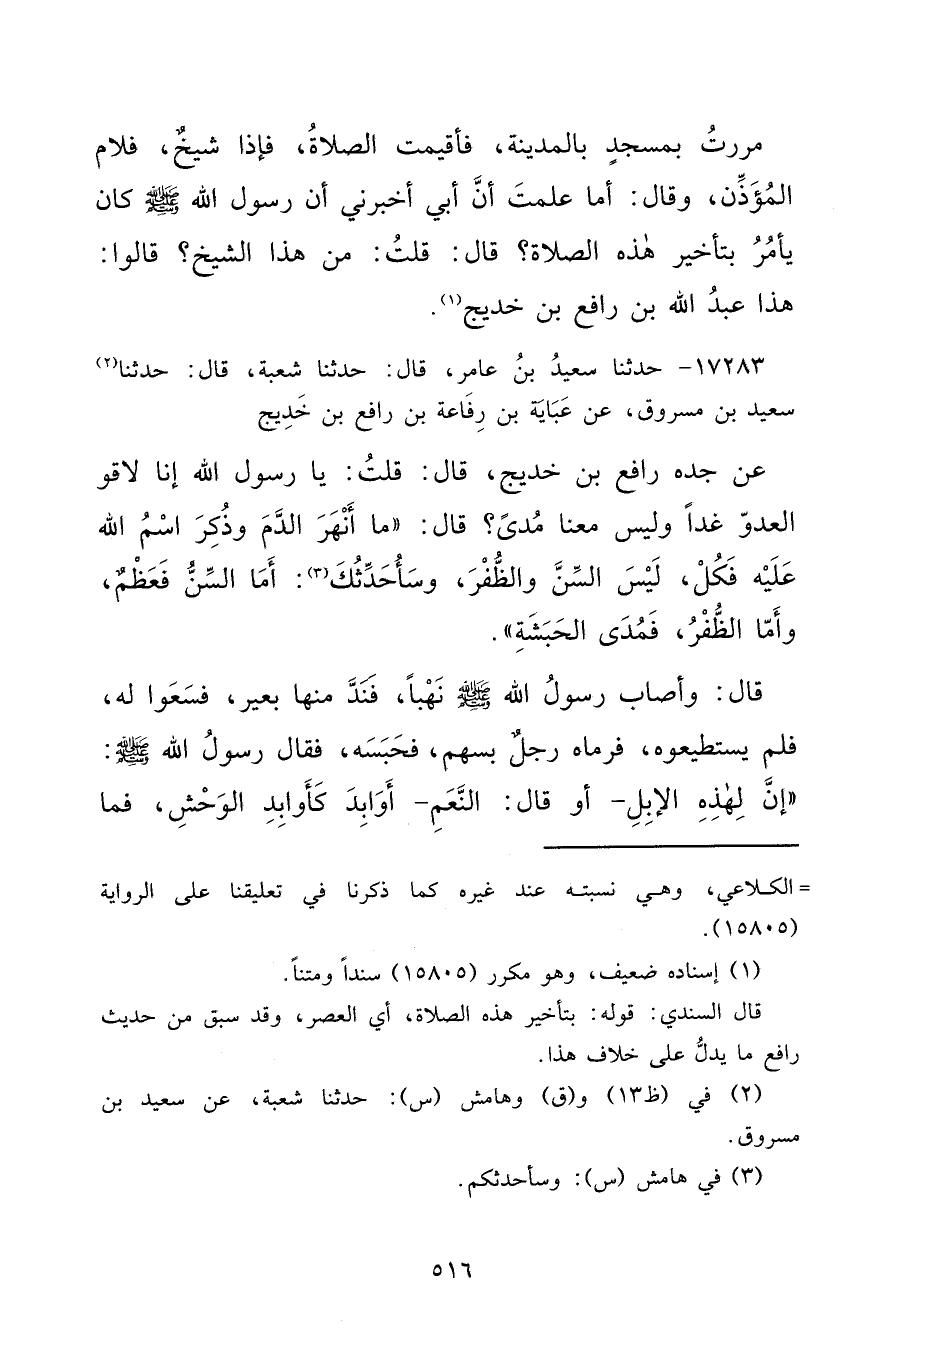 مررتُ بمسجدٍ بالمدينة، فأقيمت الصلاةُ، فإذا شيخٌ، فلام
المُؤَذِّن، وقال: أما علمتَ أنَّ أبي أخبرني أن رسول الله ﷺ كان
يأمُرُ بتأخير هٰذه الصلاة؟ قال: قلتُ: من هذا الشيخ؟ قالوا:
هذا عبدُ الله بن رافع بن خديج(١).
١٧٢٨٣- حدثنا سعيدُ بنُ عامر، قال: حدثنا شعبة، قال: حدثنا(٢)
سعيد بن مسروق، عن عَبَايَة بن رِفَاعة بن رافع بن خَدِيج
عن جده رافع بن خديج، قال: قلتُ: يا رسول الله إنا لاقو
العدوّ غداً وليس معنا مُدىً؟ قال: «ما أَنْهَرَ الدَّمَ وذُكِرَ اسْمُ الله
عَلَيْه فَكُلْ، لَيْسَ السِّنَّ والظُّفْرَ، وسَأُحَدِّثُكَ(٣): أَمَا السِّنُّ فَعَظْمٌ،
وأَمّا الظُّفْرُ، فَمُدَى الحَبَشَةِ».
قال: وأصاب رسولُ الله ﷺ نَهْباً، فَنَدَّ منها بعير، فسَعَوا له،
فلم يستطيعوه، فرماه رجلٌ بسهم، فحَبَسَه، فقال رسولُ الله ﷺ:
«إنَّ لِهٰذِهِ الإبِلِ- أو قال: النَّعَمِ- أَوَابِدَ كَأَوابِدِ الوَحْشِ، فما
= الكلاعي، وهي نسبته عند غيره كما ذكرنا في تعليقنا على الرواية
(١٥٨٠٥).
(١) إسناده ضعيف، وهو مكرر (١٥٨٠٥) سنداً ومتناً.
قال السندي: قوله: بتأخير هذه الصلاة، أي العصر، وقد سبق من حديث
رافع ما يدلُّ على خلاف هذا.
(٢) في (ظ١٣) و(ق) وهامش (س): حدثنا شعبة، عن سعيد بن
مسروق.
(٣) في هامش (س): وسأحدثكم.
٥١٦